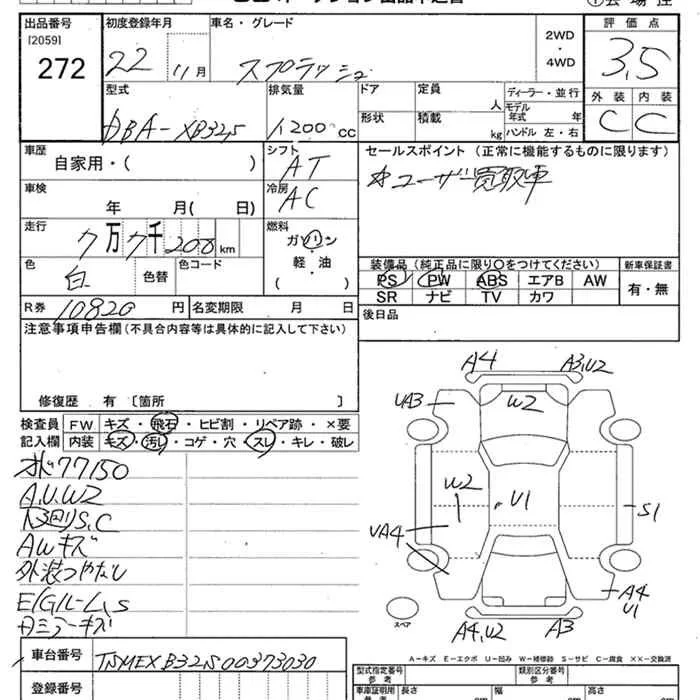 出品番号 初度登録年月 車名・グレード 2WD・4WD 評価点
[2059]
272 22 11月 スプラッシュ 3.5
型式 排気量 ドア 定員 人 ディーラー・並行 外装 内装
DBA-XB32S 1200 cc 形状 積載 kg モデル年式 年 C C
ハンドル 左・右
車歴 シフト セールスポイント (正常に機能するものに限ります)
自家用・( ) AT ☆ユーザー買取車
車検 冷房
年 月( 日) AC
走行 燃料
7万7千200km ガソリン・軽油
色 色コード ( )
白 色替
装備品 (純正品に限り○をつけてください) 新車保証書
PS PW ABS エアB AW 有・無
SR ナビ TV カワ
R券 10820 円 名変期限 月 日 後日品
注意事項申告欄 (不具合内容等は具体的に記入して下さい)
修復歴 有 〔箇所 〕
検査員 FW キズ・飛石・ヒビ割・リペア跡・×要
記入欄 内装 キズ・汚れ・コゲ・穴・スレ・キレ・破レ
77150
A.U.W2
下廻りS.C
AWキズ
外装つやなし
A4 A3,U2
UA3 W2
W2 U1 S1
UA4
A4
U1
スペア
A4,U2 A3
A-キズ E-エクボ U-凹み W-補修跡 S-サビ C-腐食 ××-交換済
車台番号 TSMEXB32S00373030
登録番号
型式指定番号 類別区分番号
参考
車庫証明用 長さ 幅 高さ
参考 cm cm cm